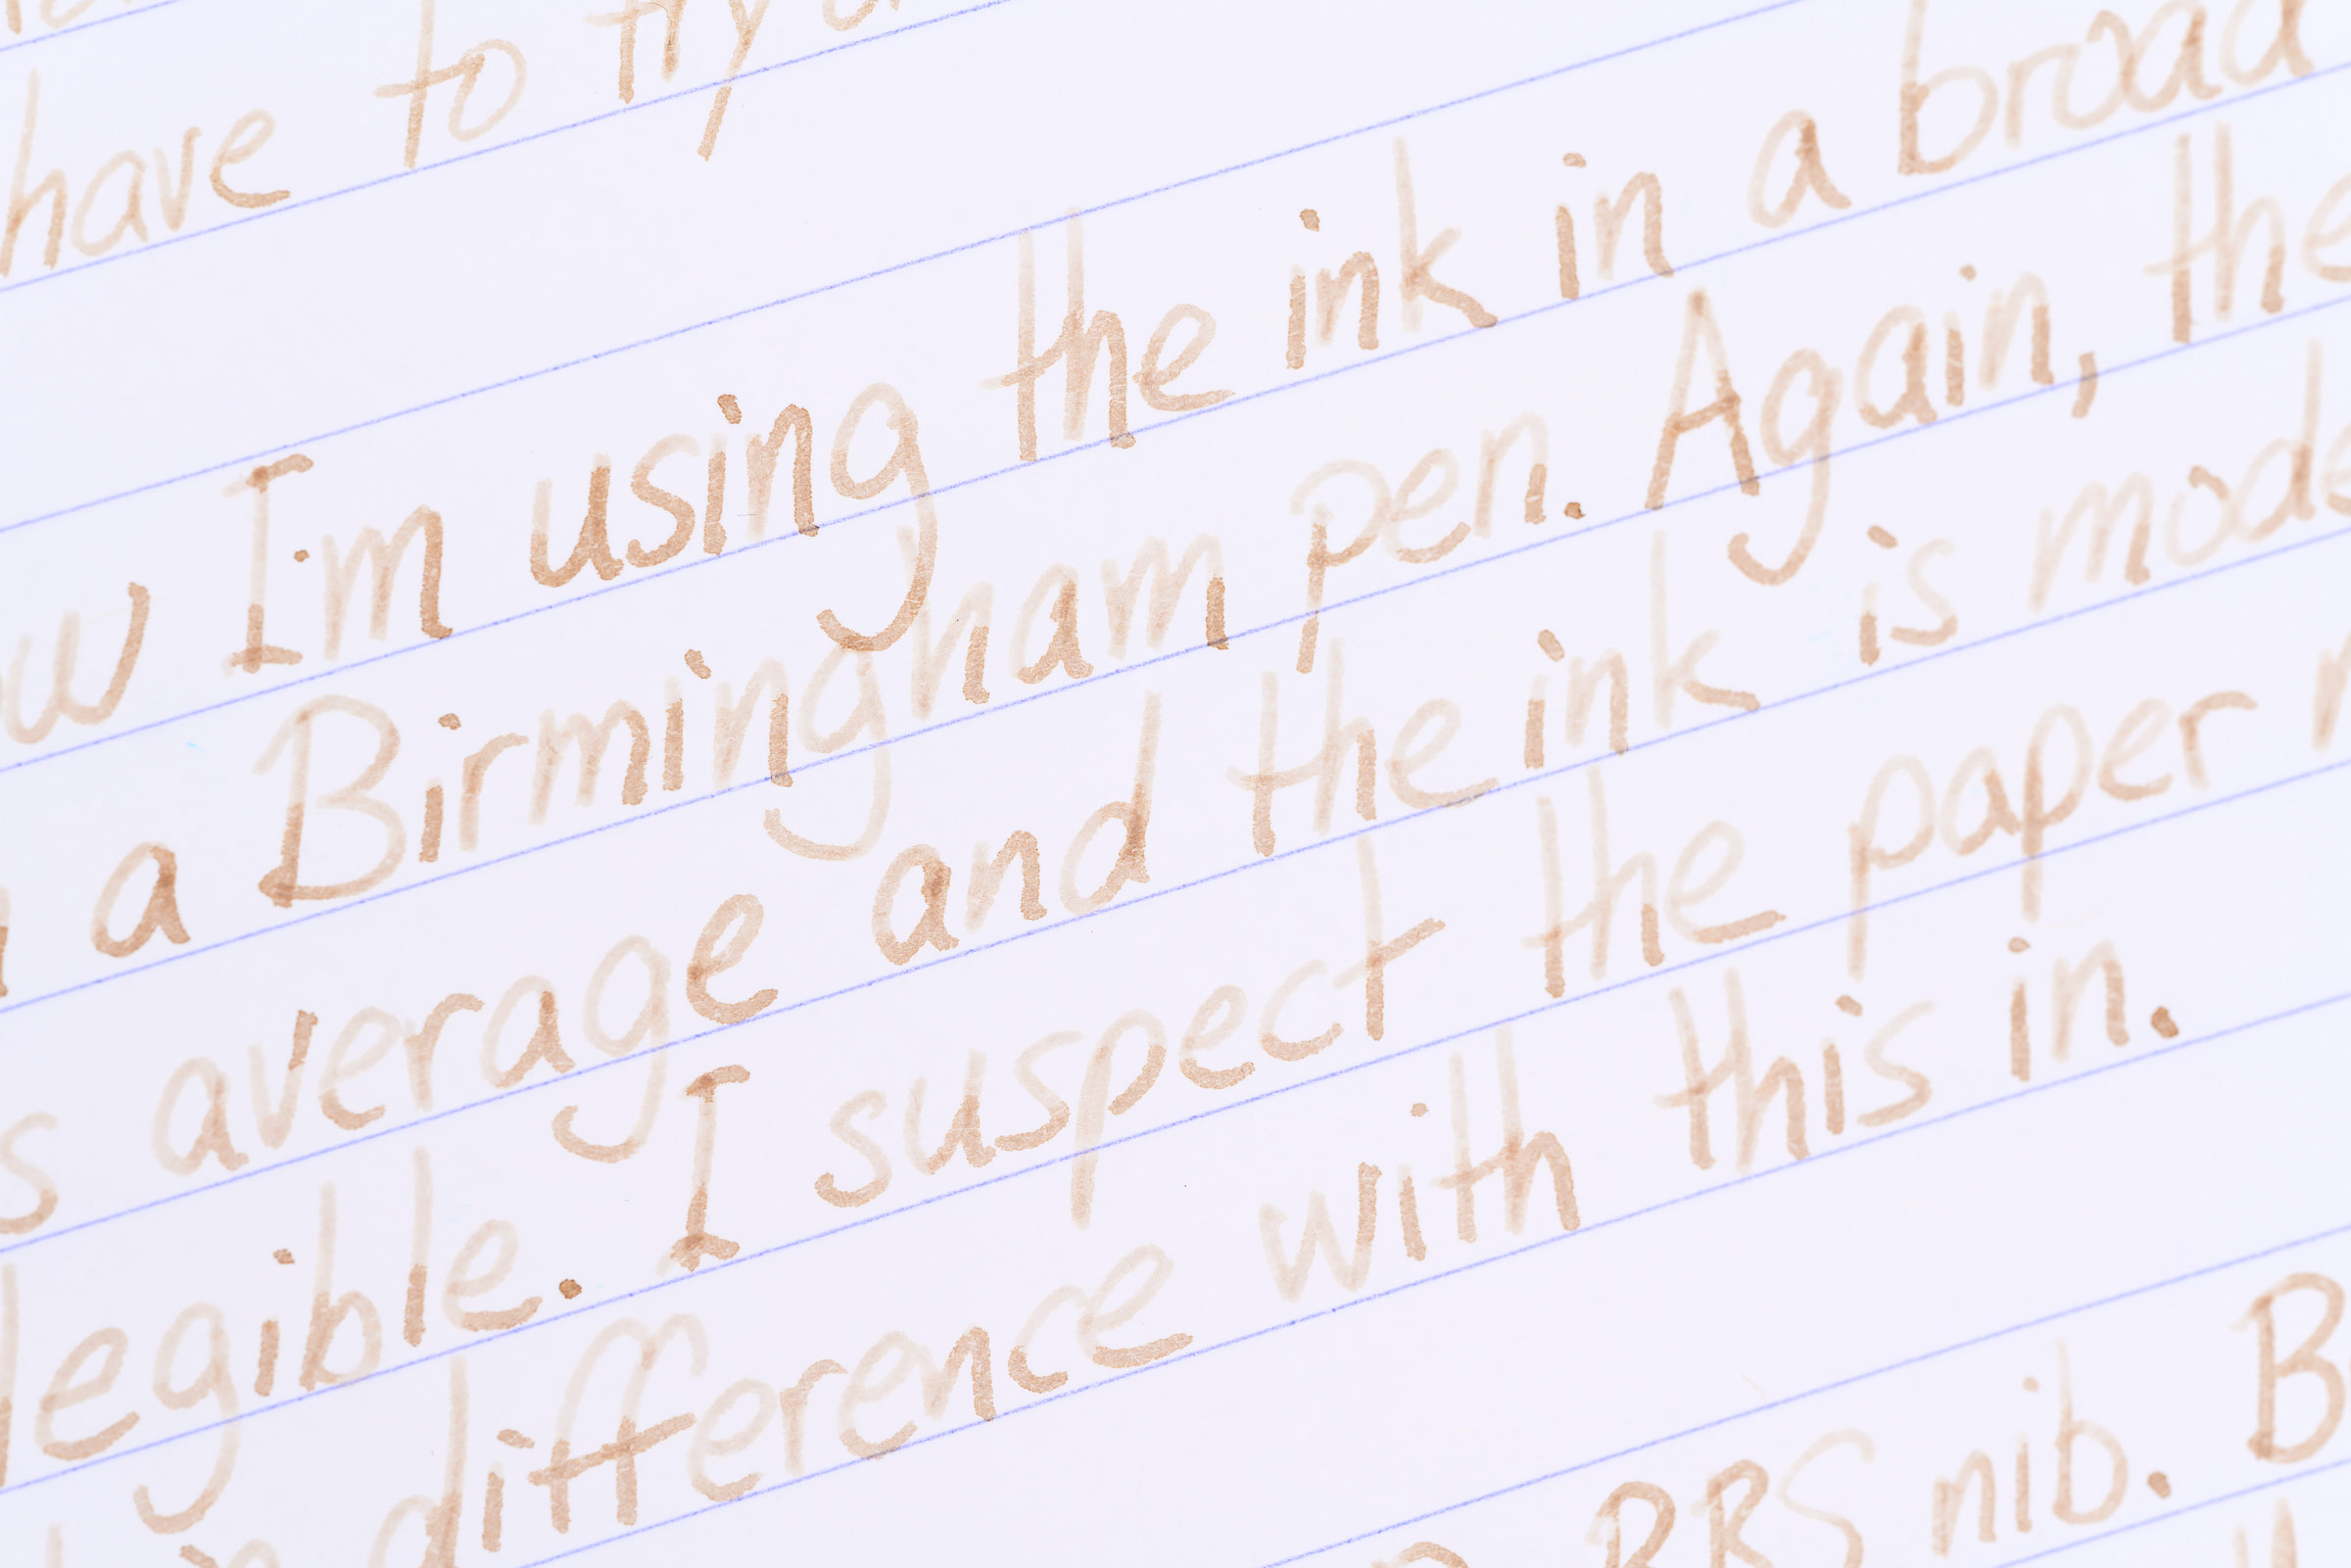 have to try
I'm using the ink in a broad
a Birmingham pen. Again, the
average and the ink is mode
legible. I suspect the paper
difference with this in.
nib. B